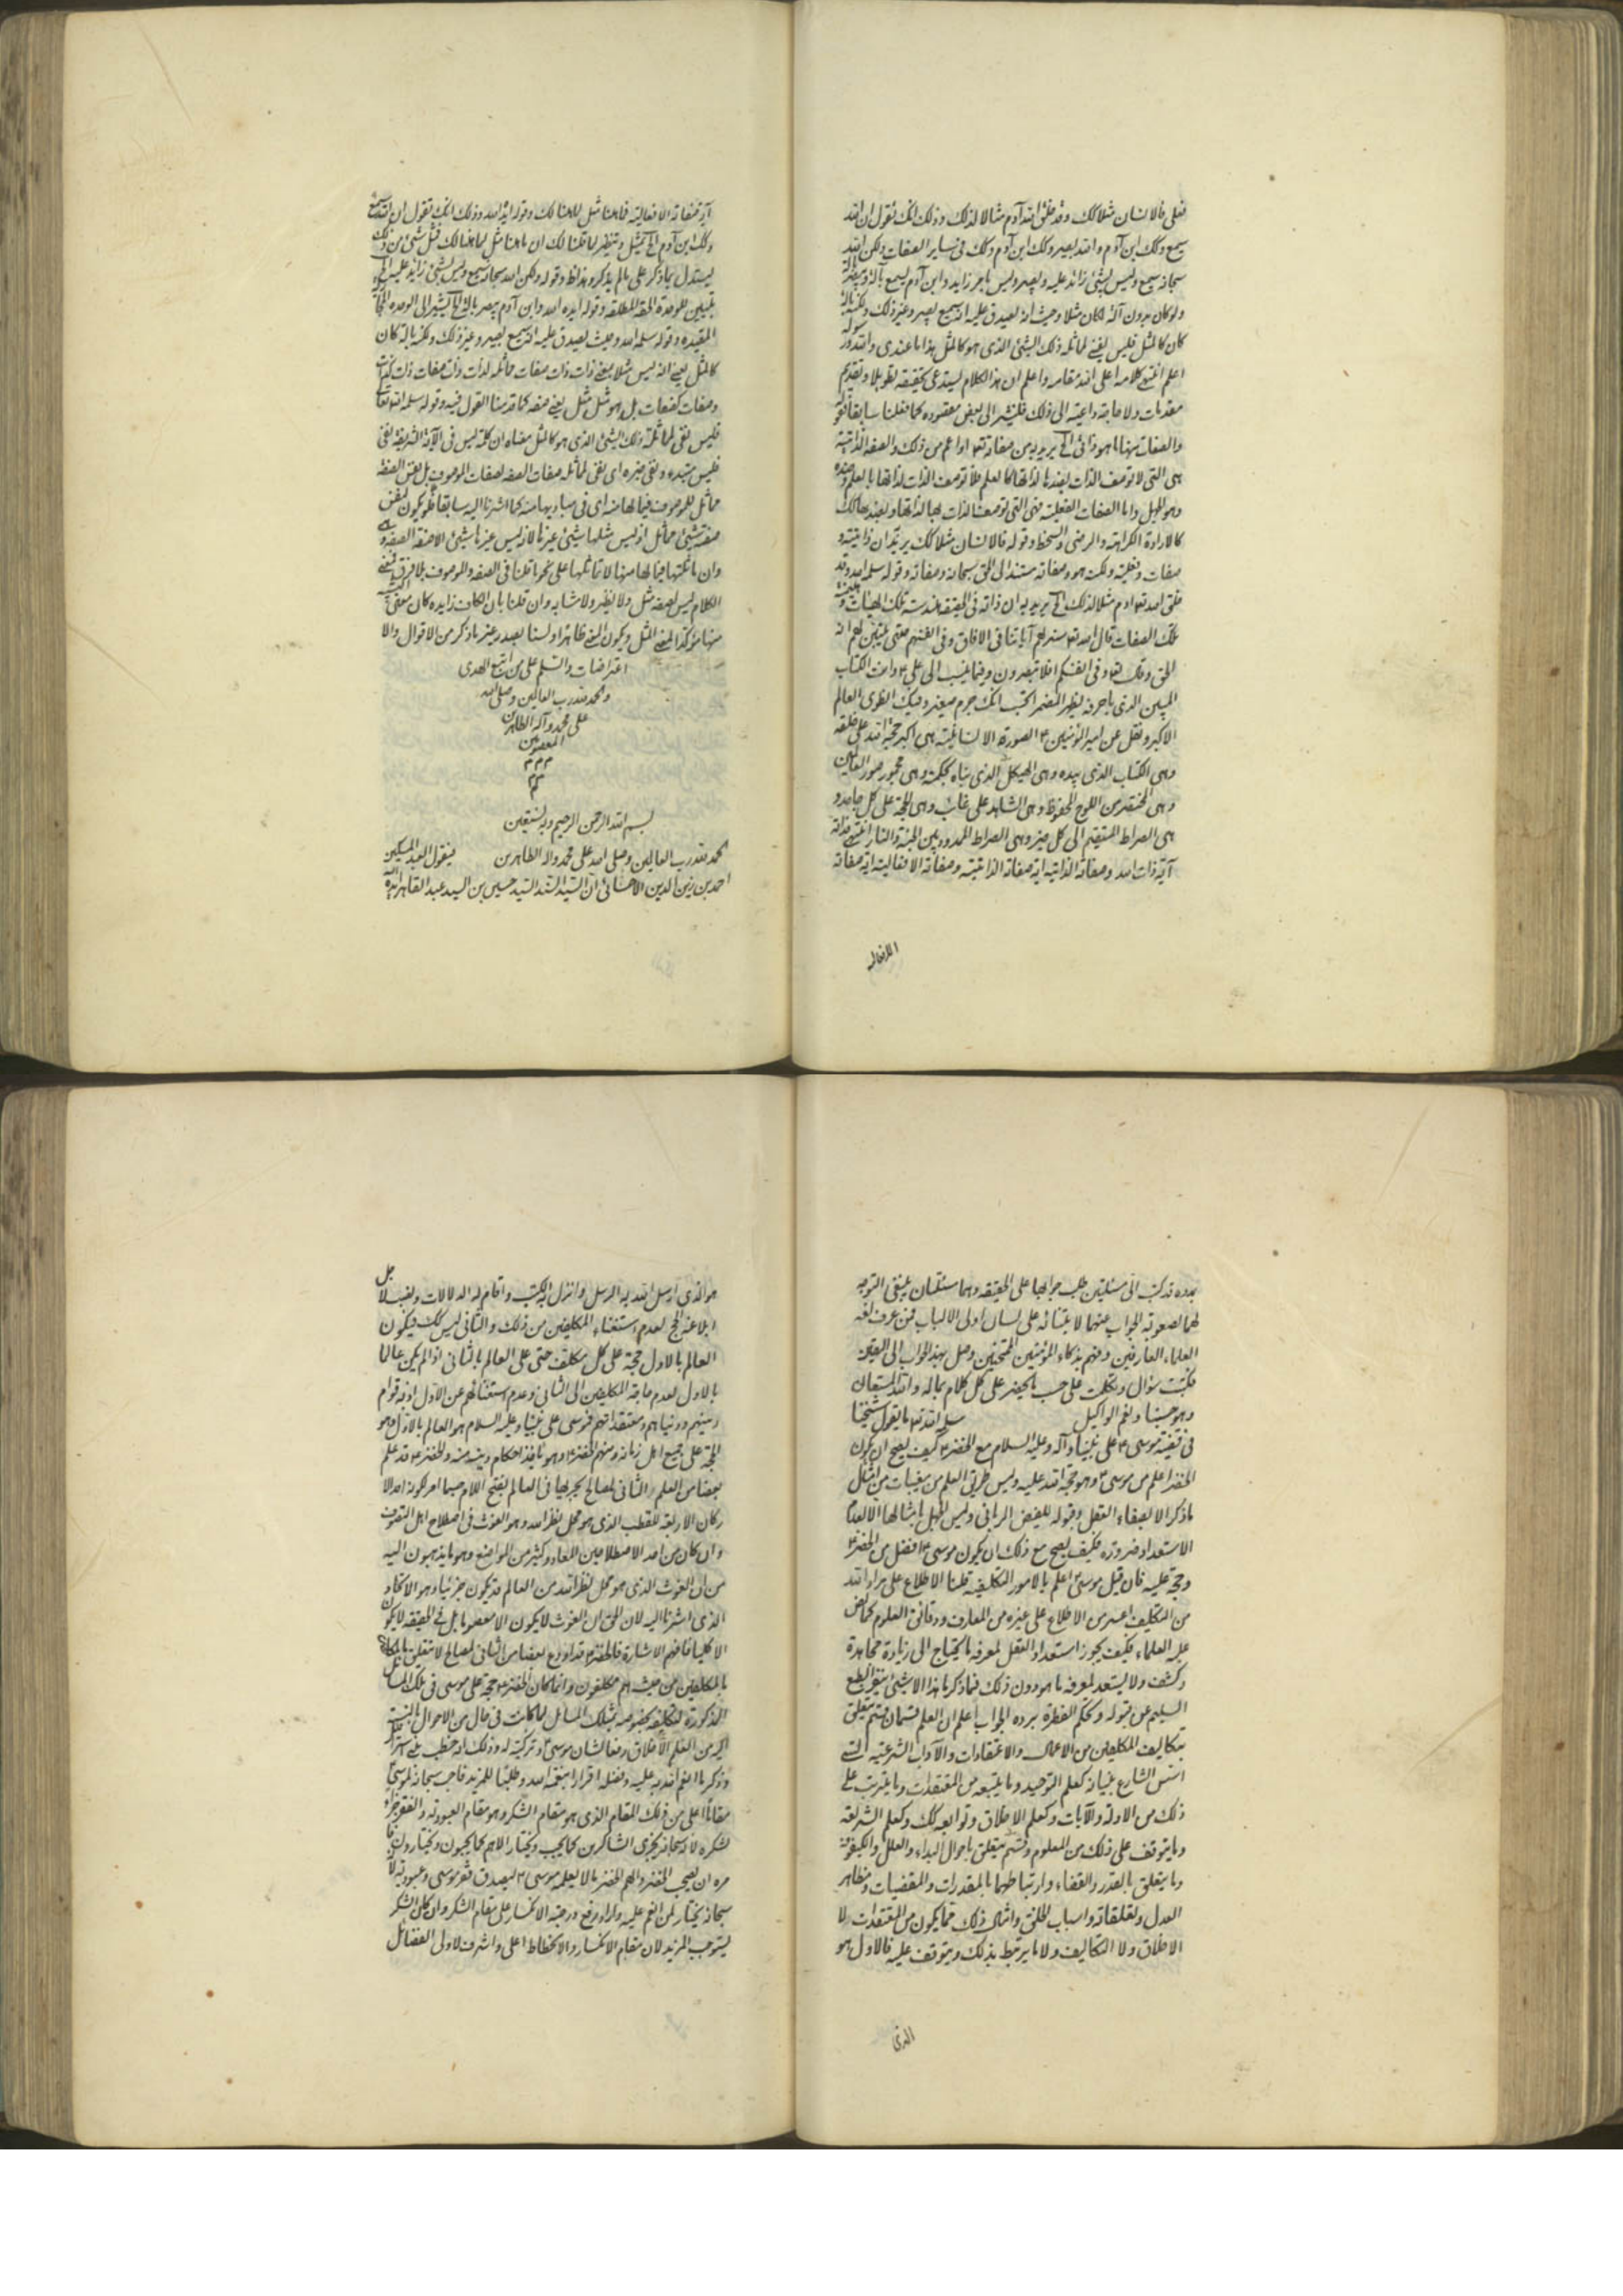 فعلى فالانسان مثلا كك وقد خلق الله آدم مثالا لذلك وذلك انك تقول ان الله
سميع وكك ابن آدم والله بصير وكك ابن آدم وكك في ساير الصفات ولكن الله
سبحانه سميع وليس بشئ زائد عليه وبصير وليس بامر زايد وابن آدم يسمع بآلة ويبصر بآلة
ولو كان بدون آلة لكان مثلا وحيث انه يصدق عليه انه سميع بصير وغير ذلك ولكنه بآلة
كان كالمثل فليس لمماثلة ذلك الشئ الذي هو كالمثل هذا ما عندي والله ورسوله
اعلم انتهى كلامه اعلى الله مقامه واعلم ان هذا الكلام يستدعي تحقيقه تطويلا وتقديم
مقدمات ولا حاجة داعية الى ذلك فلنشر الى بعض مقصوده كما فعلنا سابقا قوله
والصفات منها ما هو ذاتي الخ يريد به من صفاته تعالى او اعم من ذلك والصفة الذاتية
هي التي لا توصف الذات بضدها لذاتها كالعلم فلا توصف الذات لذاتها بالعلم وضده
وهو الجهل واما الصفات الفعلية فهي التي توصف الذات بها لذاتها وبضدها كك
كالارادة الكراهة والرضى والسخط وقوله فالانسان مثلا كك يريد ان ذاتيته و
صفات وفعلية ولكنه هو وصفاته مستند الى الحق سبحانه وصفاته وقوله سلمه الله وقد
خلق الله تعالى ادم مثلا لذلك الخ يريد به ان ذاته في الحقيقة هندست تلك الهيئات و
تلك الصفات قال الله تعالى سنريهم آياتنا في الآفاق وفي انفسهم حتى يتبين لهم انه
الحق وقال تعالى وفي انفسكم افلا تبصرون وفيما نسب الى علي ع وانت الكتاب
المبين الذي باحرفه يظهر المضمر اتحسب انك جرم صغير وفيك انطوى العالم
الاكبر ونقل عن امير المؤمنين ع الصورة الانسانية هي اكبر حجة الله على خلقه
وهي الكتاب الذي بيده وهي الهيكل الذي بناه بحكمته وهي مجموع صور العالمين
وهي المختصر من اللوح المحفوظ وهي الشاهد على غائب وهي الحجة على كل جاحد و
هي الصراط المستقيم الى كل خير وهي الصراط الممدود بين الجنة والنار انتهى فذاته
آية ذات الله وصفاته الذاتية اية صفاته الذاتية وصفاته الافعالية اية صفاته
الافعالية
آية صفاته الافعالية فما هنا مثل لما هنالك وقوله ايده الله وذلك انك تقول ان الله سميع
وكك ابن آدم الخ تمثيل وتنظير لما قلنا لك ان ما هنا مثل لما هنالك فمثل شئ من ذلك
ليستدل بما ذكر على ما لم يذكر وهذا ظ وقوله ولكن الله سبحانه سميع وليس بشئ زايد عليه الخ
تبيين للوحدة الحقة المطلقة وقوله ايده الله وابن آدم يبصر بآلة الخ يشير الى الوحدة
المقيدة وقوله سلمه الله وحيث يصدق عليه انه سميع بصير وغير ذلك ولكنه بآلة كان
كالمثل يعني انه ليس مثلا يعني ذات ذات صفات مماثلة لذات ذات صفات ذات كذات
وصفات كصفات بل هو مثل مثل يعني صفة كما قدمنا القول فيه وقوله سلمه الله تعالى
فليس نفى لمماثلة ذلك الشئ الذي هو كالمثل معناه ان كلمة ليس في الآية الشريفة لنفي
فليس مبتدء ونفي خبره اى نفي لمماثلة صفات الصفة لصفات الموصوف بل نفس الصفة
مماثل للموصوف فيما لها منه اى في مباديها منه كما اشرنا اليه سابقا فلو يكون نفس
صفة شئ مماثل اذ ليس مثلها شئ غيرها لانه ليس غيرها شئ الا صفة الصفة
وان ماثلتها فيما لها منها لا تماثلها على نحو ما قلنا في الصفة والموصوف بلا فرق فمعنى
الكلام ليس لصفته مثل ولا نظير ولا مشابه وان قلنا بان الكاف زايده كان معنى
منها مؤكدا لمعنى المثل ويكون المعنى ظاهرا ولسنا بصدد غير ما ذكر من الاقوال والا
اعتراضات والسلم على من اتبع الهدى
والحمد لله رب العالمين وصلى الله
على محمد وآله الطاهرين
المعصومين
م م م
م م
م
بسم الله الرحمن الرحيم وبه نستعين
الحمد لله رب العالمين وصلى الله على محمد واله الطاهرين فيقول العبد المسكين
احمد بن زين الدين الاحسائي ان السيد السند السيد حسين بن السيد عبد القاهر ايده الله
بمدده قد كتب الى مسئلتين طلب جوابهما على الحقيقة وهما مسئلتان ينبغي التوجه
لهما لصعوبة الجواب عنهما لابتنائه على لسان اولى الالباب فمن عرف لغة
العلماء العارفين وفهم بذكاء المؤمنين الممتحنين وصل بهذا الجواب الى اليقين
فكتبت سؤال وتكلمت على حسب ما يحضر على كل كلام بماله والله المستعان
وهو حسبنا ونعم الوكيل سلمه الله تعالى ما يقول شيخنا
في قضية موسى ع على نبينا وآله وعليه السلام مع الخضر ع كيف يصح ان يكون
الخضر اعلم من موسى ع وهو حجة الله عليه وليس طريق العلم من مغيبات من امثال
ما ذكر الا بصفاء العقل وقبوله للفيض الرباني وليس الجهل بامثالها الا لعدم
الاستعداد ضرورة فكيف يصح مع ذلك ان يكون موسى ع افضل من الخضر ع
وحجة عليه فان قيل موسى ع اعلم بالامور التكليفية قلنا الاطلاع على مراد الله
من التكليف اعسر من الاطلاع على غيره من المعارف ودقائق العلوم كما نص
عليه العلماء فكيف يجوز استعداد العقل لمعرفة ما يحتاج الى زيادة مجاهدة
وكشف ولا يستعد لمعرفة ما هو دون ذلك فما ذكر ما هذا الا شئ ينفر الطبع
السليم عن قبوله وتحكم الفطرة برده الجواب اعلم ان العلم قسمان قسم يتعلق
بتكاليف المكلفين من الاعمال والاعتقادات والآداب الشرعية التي
اسس الشارع بنيانه كعلم التوحيد وما يتبعه من المعتقدات وما يترتب على
ذلك من الادلة والآيات وكعلم الاخلاق وتوابعه كك وكعلم الشريعة
وما يتوقف على ذلك من العلوم وقسم يتعلق باحوال البداء والعلل والكيفوفة
وما يتعلق بالقدر والقضاء وارتباطهما بالمقدرات والمقضيات ومظاهر
العدل وتعلقاته واسباب الخلق وامثال ذلك مما يكون من المعتقدات ولا
الاخلاق ولا التكاليف ولا ما يرتبط بذلك ويتوقف عليه فالاول هو
الذي
هو الذي ارسل الله به الرسل وانزل به الكتب واقام له الدلالات ونصب لاجل
ابلاغه الحجج لعدم استغناء المكلفين من ذلك والثاني ليس كك فيكون
العالم بالاول حجة على كل مكلف حتى على العالم بالثاني اذا لم يكن عالما
بالاول لعدم حاجة المكلفين الى الثاني وعدم استغنائهم عن الاول اذ به قوام
دينهم ودنياهم ومعتقداتهم فموسى على نبينا وعليه السلام هو العالم بالاول وهو
الحجة على جميع اهل زمانه ومنهم الخضر ع وهو نافذ احكام دينه منه والخضر ع قد علم
بعضا من العلم الثاني لمصالح يجريها في العالم بفتح اللام حيثما امر لكونه احد الا
ركان الاربعة للقطب الذي هو محل نظر الله وهو الغوث في اصطلاح اهل التصوف
وان كان من احد الاصطلاحين المعاد وكثير من المواضع وهو ما يذهبون اليه
من ان الغوث الذي هو محل نظر الله من العالم قد يكون جزئيا وهو الاتحاد
الذي اشرنا اليه لان الحق ان الغوث لا يكون الا معصوما بل في الحقيقة لا يكون
الا كليا فافهم الاشارة فالخضر ع قد اودع بعضا من الثاني لمصالح لا تتعلق
بالمكلفين من حيث هم مكلفون وانما كان الخضر ع حجة على موسى في تلك المسائل
المذكورة لتكليفه بخصوصه بتلك المسائل لما كانت في حال من الاحوال بالنسبة
اليه من العلم الاخلاق رفعا لشان موسى ع وتزكية له وذلك انه خطب بني اسرائيل
وذكر ما انعم الله به عليه وفضله اقرارا بنعمة الله وطلبا للمزيد فاحب سبحانه لموسى ع
مقاما اعلى من ذلك المقام الذي هو مقام الشكر وهو مقام العبودية والفقر جزاء
لشكره لانه سبحانه يجزى الشاكرين كما يحب ويختار الاهم كما يحبون ويختارون فا
مره ان يصحب الخضر والهم الخضر ما لا يعلمه موسى ع ليصدق فقر موسى وعبوديته لانه
سبحانه يختار لمن انعم عليه واراد رفع درجته الانكسار على مقام الشكر وان كان الشكر
يستوجب المزيد لان مقام الانكسار والانحطاط اعلى واشرف لاولى الفضائل